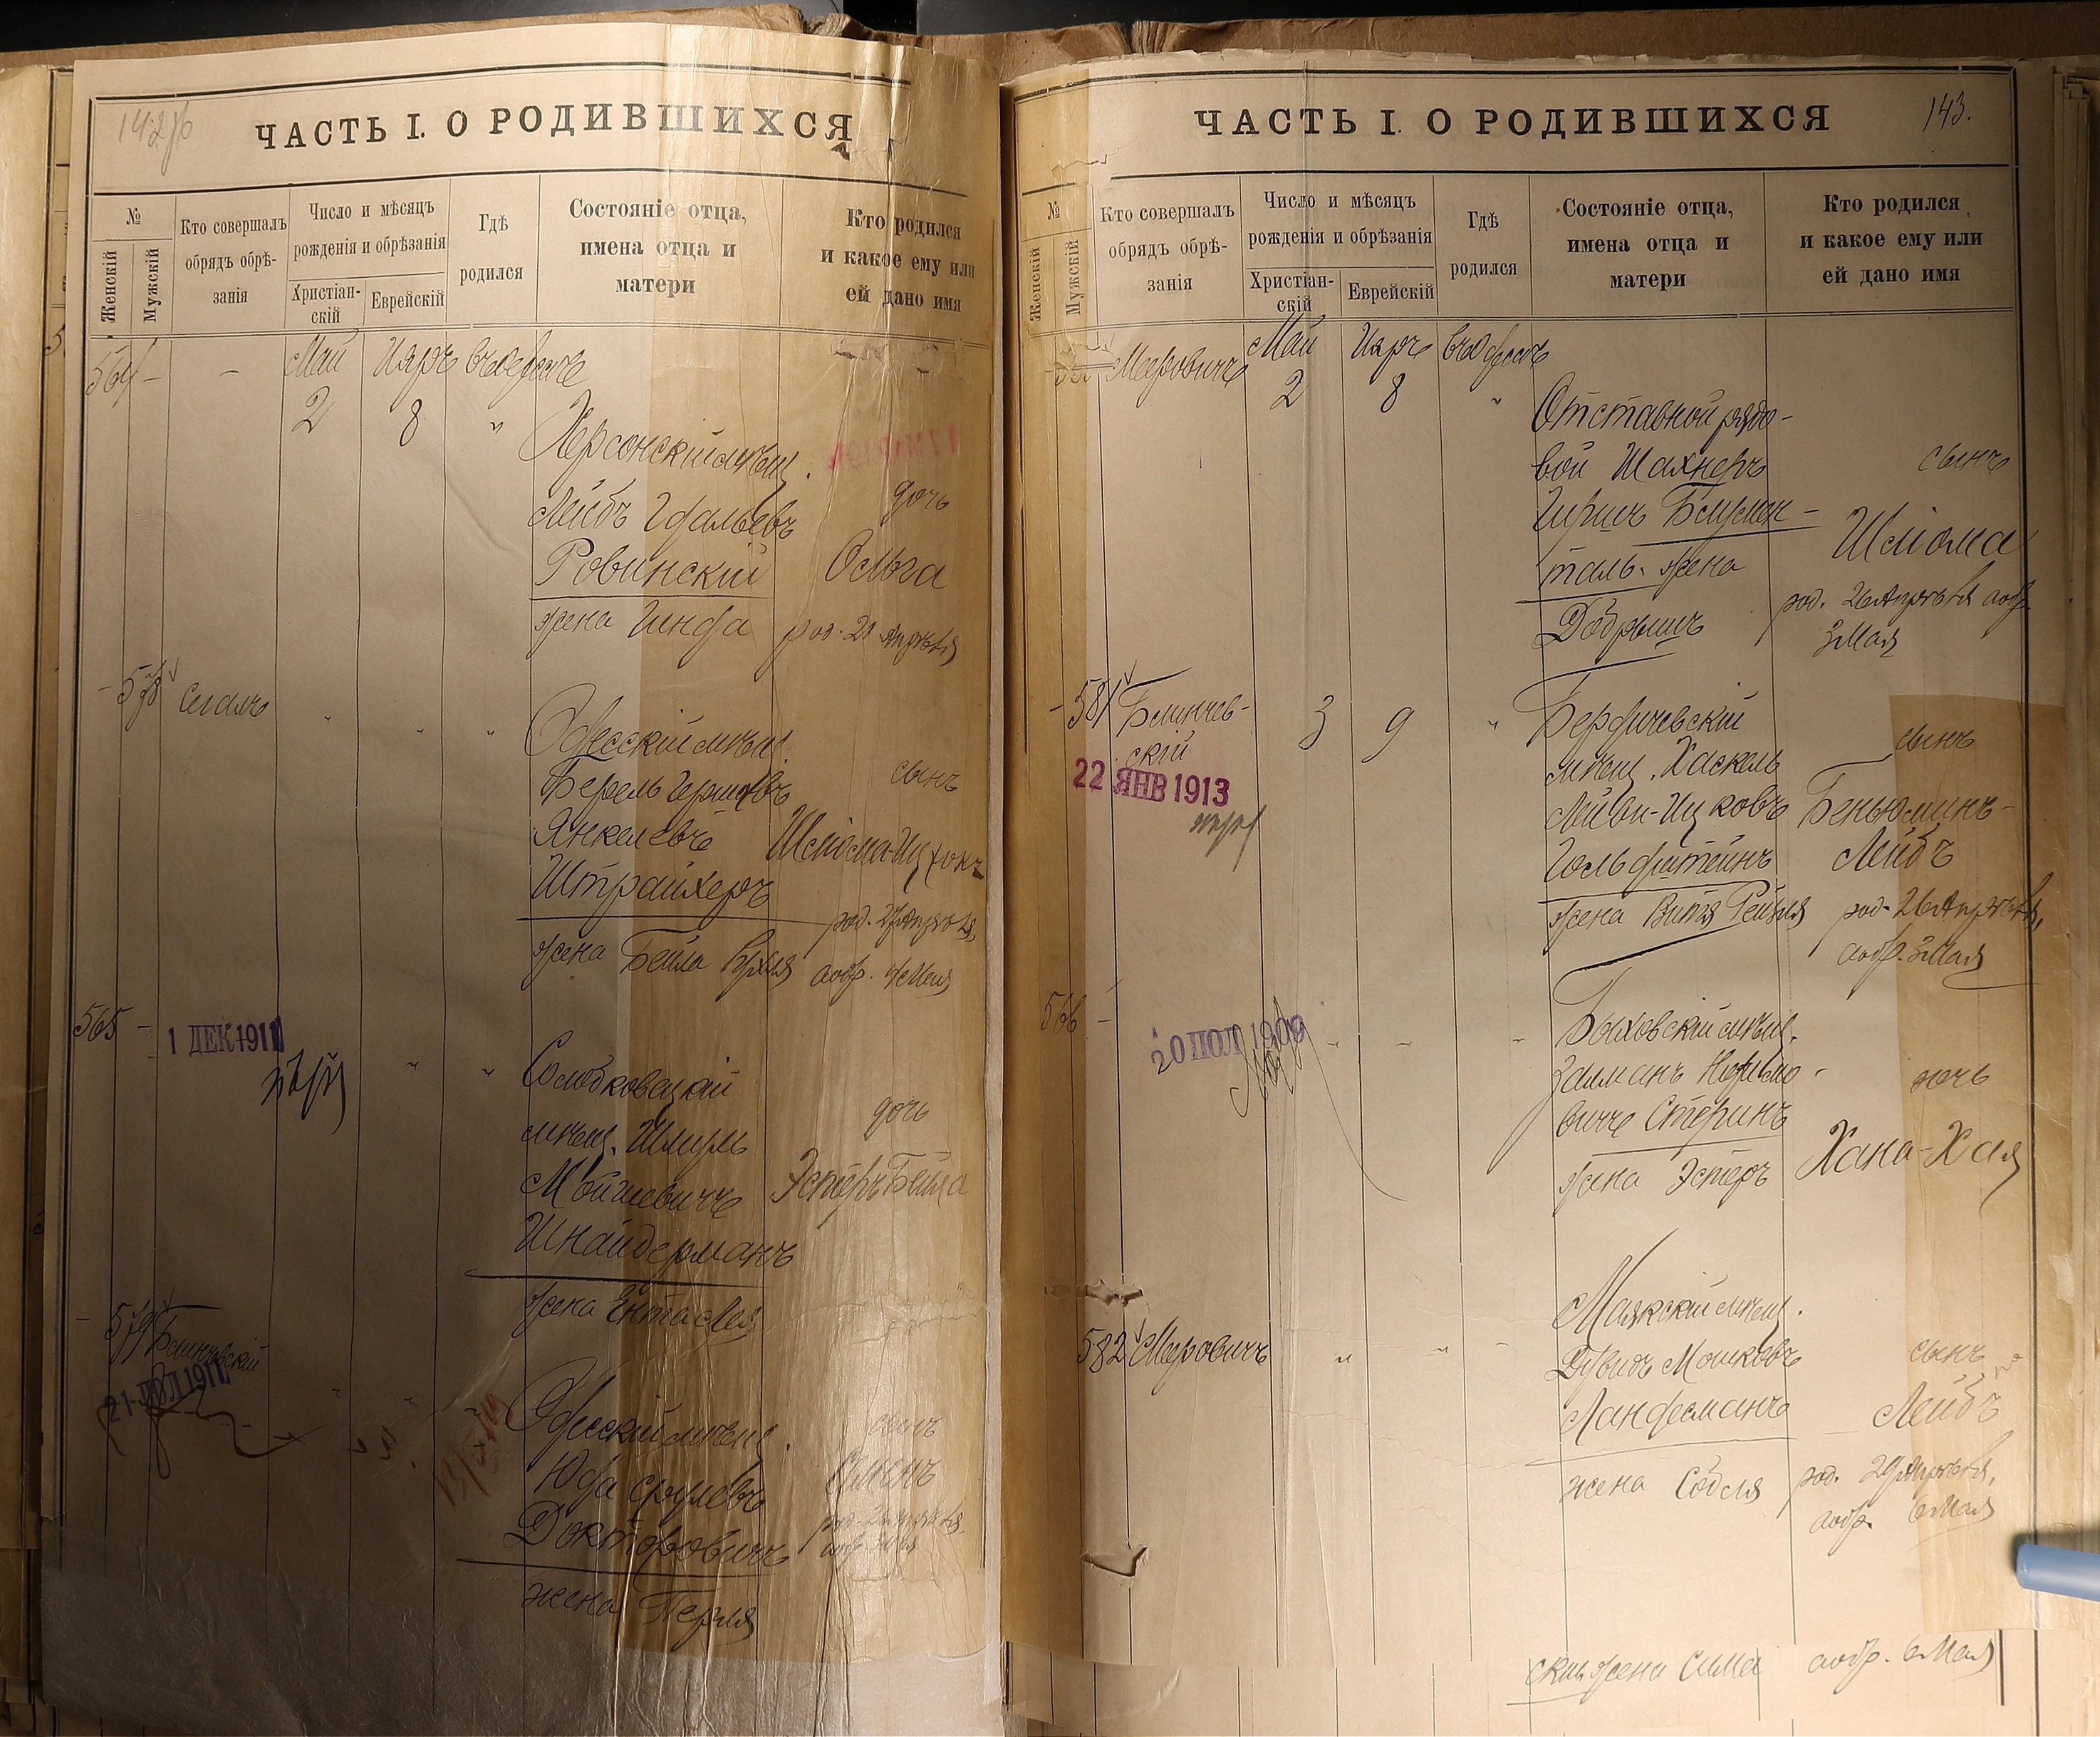 ЧАСТЬ I. О РОДИВШИХСЯ
№
Женскій
Мужскій
Кто совершалъ
обрядъ обрѣ-
занія
Число и мѣсяцъ
рожденія и обрѣзанія
Христіан-
скій
Еврейскій
Гдѣ
родился
Состояніе отца,
имена отца и
матери
Кто родился
и какое ему или
ей дано имя
564 - - Май Ияръ въ Одессѣ
2 8 "
Херсонскій мѣщ.
Лейбъ
Ровинскій
жена
дочь
Ольга
род. 21 Апрѣля
- 578 Сегалъ " " "
Одесскій мѣщ.
Берель Гершовъ
Янкелевъ
Штрайхеръ
жена Бейла
сынъ
Шліома-Ицхокъ
род. 27 Апрѣля,
а обр. 4 Мая
565 -
1 ДЕК 1911
" "
мѣщ. Шмуль
Мойшевичъ
Шнайдерманъ
жена Ента Лея
дочь
Эстеръ Бейла
- 579 Блинчевскій
21 ІЮЛ 1911
Одесскій мѣщ.
Юфа Срулевъ
Докторовичъ
жена Перля
сынъ
Симонъ
ЧАСТЬ I. О РОДИВШИХСЯ
143.
№
Женскій
Мужскій
Кто совершалъ
обрядъ обрѣ-
занія
Число и мѣсяцъ
рожденія и обрѣзанія
Христіан-
скій
Еврейскій
Гдѣ
родился
Состояніе отца,
имена отца и
матери
Кто родился
и какое ему или
ей дано имя
Мееровичъ Май Ияръ въ Одессѣ
2 8 "
Отставной рядо-
вой Шахнеръ
Гиршъ Блумен-
таль. жена
Добрышъ
сынъ
Шліома
род. 26 Апрѣля а обр.
3 Мая
- 581 Блинчев-
скій
3 9 "
22 ЯНВ 1913
Бердичевскій
мѣщ. Хаскель
Лейви-Ицковъ
Гольдштейнъ
жена Витя Рейзя
сынъ
Беньюминъ-
Лейбъ
род. 26 Апрѣля,
а обр. 3 Мая
566 -
20 ІЮЛ 1909
Быховскій мѣщ.
Залманъ
вичъ Стеринъ
жена Эстеръ
дочь
Хана-Хая
582 Мееровичъ " " "
Маякскій мѣщ.
Дувидъ Мошковъ
Ландесманъ
жена Собля
сынъ
Лейбъ
род. 29 Апрѣля,
а обр. 6 Мая
скій жена Сима
а обр. 6 Мая